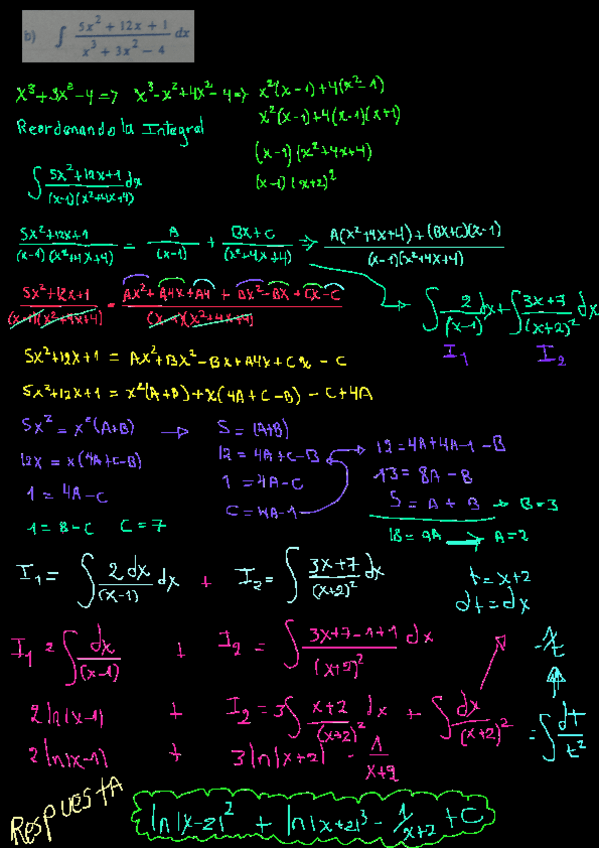 b) ∫ (5x² + 12x + 1)/(x³ + 3x² − 4) dx
x³+3x²−4 => x³−x²+4x²−4 => x²(x−1)+4(x²−1)
x²(x−1)+4(x−1)(x+1)
Reordenando la Integral
(x−1)(x²+4x+4)
(x−1)(x+2)²
∫ (5x²+12x+1)/((x−1)(x²+4x+4)) dx
(5x²+12x+1)/((x−1)(x²+4x+4)) = A/(x−1) + (Bx+C)/(x²+4x+4) => (A(x²+4x+4)+(Bx+C)(x−1))/((x−1)(x²+4x+4))
(5x²+12x+1)/((x−1)(x²+4x+4)) = (Ax²+A4x+A4 + Bx²−Bx+Cx−C)/((x−1)(x²+4x+4))
∫ 2/(x−1) dx + ∫ (3x+7)/(x+2)² dx
I₁ I₂
5x²+12x+1 = Ax²+Bx²−Bx+A4x+Cx − C
5x²+12x+1 = x²(A+B)+x(4A+C−B) − C+4A
5x² = x²(A+B) → 5 = (A+B)
12x = x(4A+C−B) 12 = 4A+C−B → 12 = 4A+4A−1−B
1 = 4A−C 1 = 4A−C 13 = 8A−B
C = 4A−1 5 = A + B → B=3
1 = 8−C C = 7 18 = 9A → A=2
I₁ = ∫ 2dx/(x−1) dx + I₂ = ∫ (3x+7)/(x+2)² dx
t = x+2
dt = dx
I₁ = ∫ dx/(x−1) + I₂ = ∫ (3x+7−1+1)/(x+2)² dx −1/t
2ln|x−1| + I₂ = 3∫ (x+2)/(x+2)² dx + ∫ dx/(x+2)² = ∫ dt/t²
2ln|x−1| + 3ln|x+2| − 1/(x+2)
RESPUESTA
ln|x−2|² + ln|x+2|³ − 1/(x+2) + C